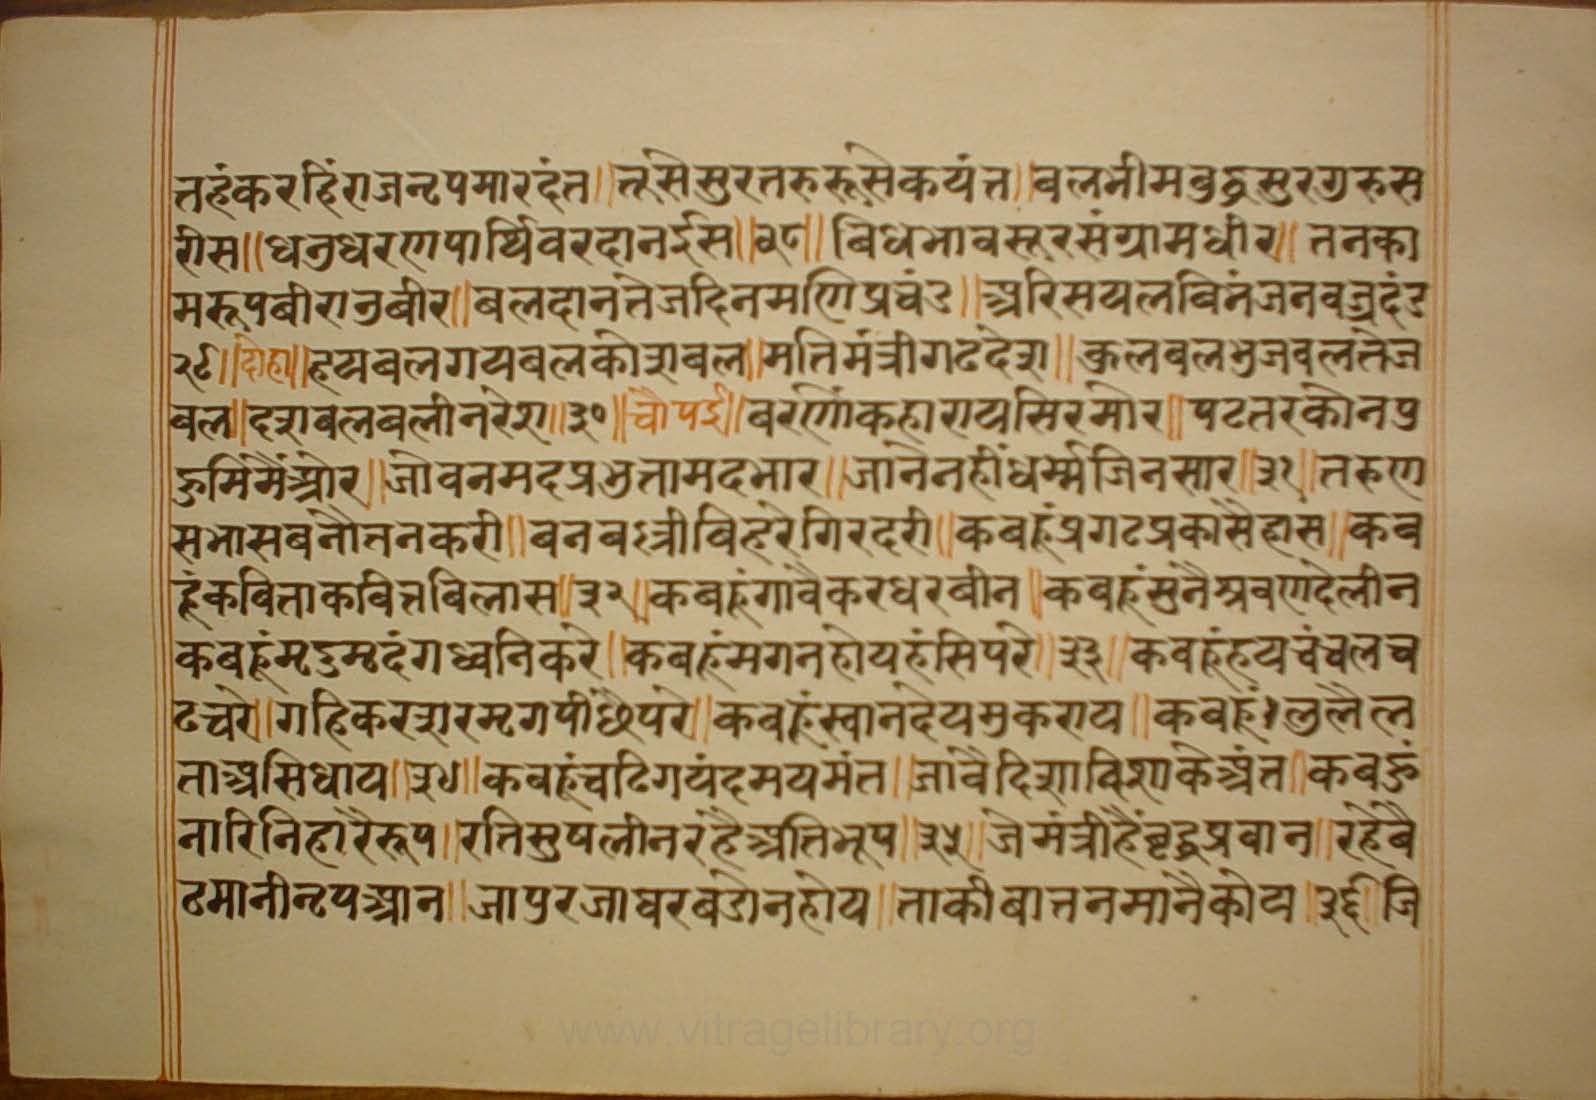 तहंकरहिंराजनृपमारदंत॥तूसेसुरतरुरूसेकयंत॥बलभीमबुद्धसुरगुरुस
रीस॥धनुधरणपार्थिवरदानईस॥२८॥बिधभावसूरसंग्रामधीर॥तनका
मरूपबीरानुबीर॥बलदानतेजदिनमणिप्रचंड॥अरिसयलबिनंजनवज्रदंड
२९॥दोहा॥हयबलगयबलकोशबल॥मतिमंत्रीगढदेश॥कुलबलभुजबलतेज
बल॥दशबलबलीनरेश॥३०॥चौपई॥बरणौंकहारायसिरमोर॥पटतरकोनपु
हुमिमैंओर॥जोवनमदप्रभुतामदभार॥जानैनहींधर्म्मजिनसार॥३१॥तरुण
सभासबनौतनकरी॥बनबस्त्रीबिहरेगिरदरी॥कबहूंप्रगटप्रकासैहास॥कब
हूंकविताकवित्तबिलास॥३२॥कबहूंगावैकरधरबीन॥कबहूंसुनैश्रवणदेलीन
कबहूंमृदुमृदंगध्वनिकरे॥कबहूंमगनहोयहंसिपरे॥३३॥कबहूंहयचंचलच
ढच्चरे॥गहिकरशरमृगपीछैंपरे॥कबहूंस्वानदेयमुकराय॥कबहूं।लुलैल
ताअसिधाय॥३४॥कबहूंचढिगयंदमयमंत॥जावैदिशाविशाकेअंत॥कबहूं
नारिनिहारैरूप॥रतिसुषलीनरहैअतिभूप॥३५॥जेमंत्रीहैंवृद्धप्रवान॥रहेबै
ठमानीनृपआन॥जापुरजाघरबडोनहोय॥ताकीबातनमानैकोय॥३६॥जि
www.vitragelibrary.org